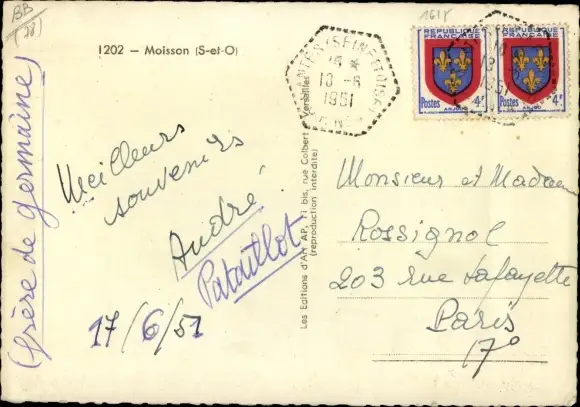 BB
(28)
1202 — Moisson (S-et-O)
(frère de germaine)
Meilleurs
souvenirs
André
Pataillot
17/6/51
Les Editions d'Art AP, 11 bis, rue Colbert - Versailles
(reproduction interdite)
MANTES
SEINE-ET-OISE
18 -6
1951
1618
REPUBLIQUE
FRANÇAISE
Postes
4F
ANJOU
REPUBLIQUE
FRANÇAISE
Postes
4F
ANJOU
Monsieur et Madame
Rossignol
203 rue Lafayette
Paris
17°